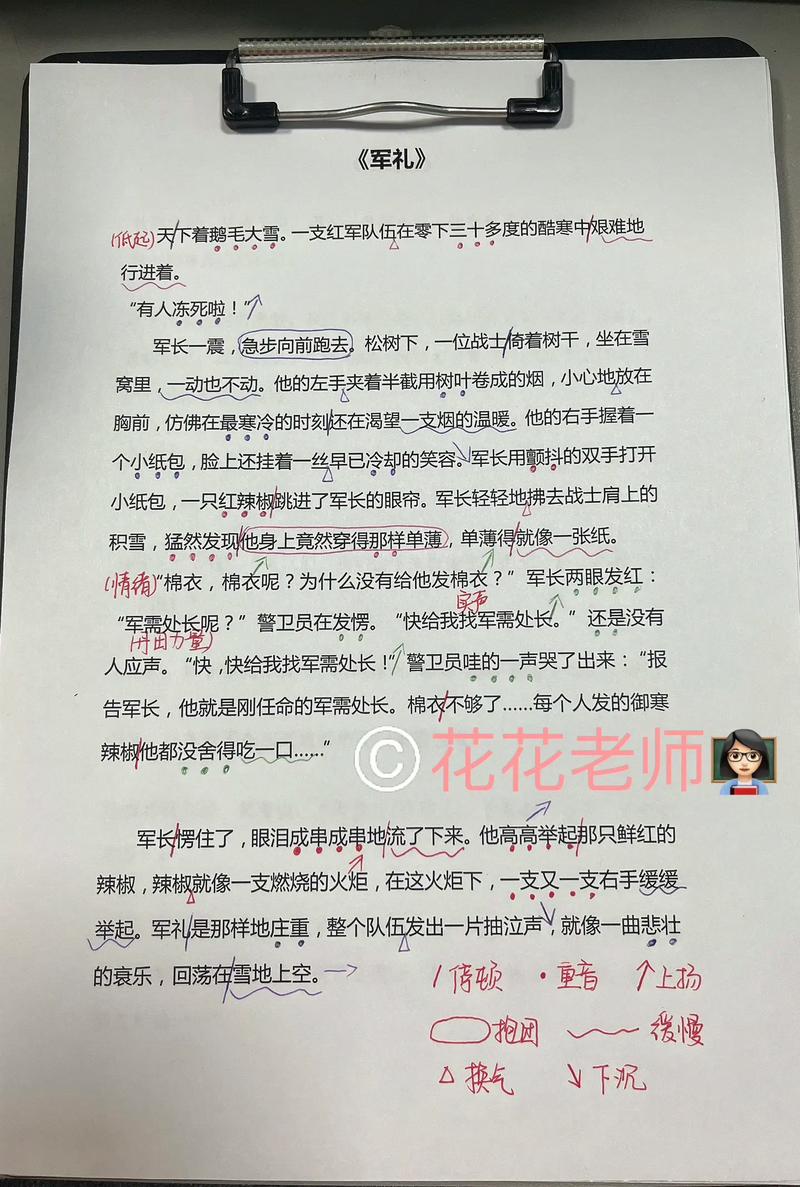 《军礼》
(低起)天下着鹅毛大雪。一支红军队伍在零下三十多度的酷寒中艰难地
行进着。
“有人冻死啦！”
军长一震，急步向前跑去。松树下，一位战士倚着树干，坐在雪
窝里，一动也不动。他的左手夹着半截用树叶卷成的烟，小心地放在
胸前，仿佛在最寒冷的时刻还在渴望一支烟的温暖。他的右手握着一
个小纸包，脸上还挂着一丝早已冷却的笑容。军长用颤抖的双手打开
小纸包，一只红辣椒跳进了军长的眼帘。军长轻轻地拂去战士肩上的
积雪，猛然发现他身上竟然穿得那样单薄，单薄得就像一张纸。
(情绪)“棉衣，棉衣呢？为什么没有给他发棉衣？” 军长两眼发红：
实声
“军需处长呢？” 警卫员在发愣。“快给我找军需处长。” 还是没有
(丹田力量)
人应声。“快，快给我找军需处长！” 警卫员哇的一声哭了出来：“报
告军长，他就是刚任命的军需处长。棉衣不够了……每个人发的御寒
辣椒他都没舍得吃一口……”
©花花老师
军长愣住了，眼泪成串成串地流了下来。他高高举起那只鲜红的
辣椒，辣椒就像一支燃烧的火炬，在这火炬下，一支又一支右手缓缓
举起。军礼是那样地庄重，整个队伍发出一片抽泣声，就像一曲悲壮
的哀乐，回荡在雪地上空。
/停顿 •重音 ↑上扬
抱团 缓慢
△换气 ↘下沉